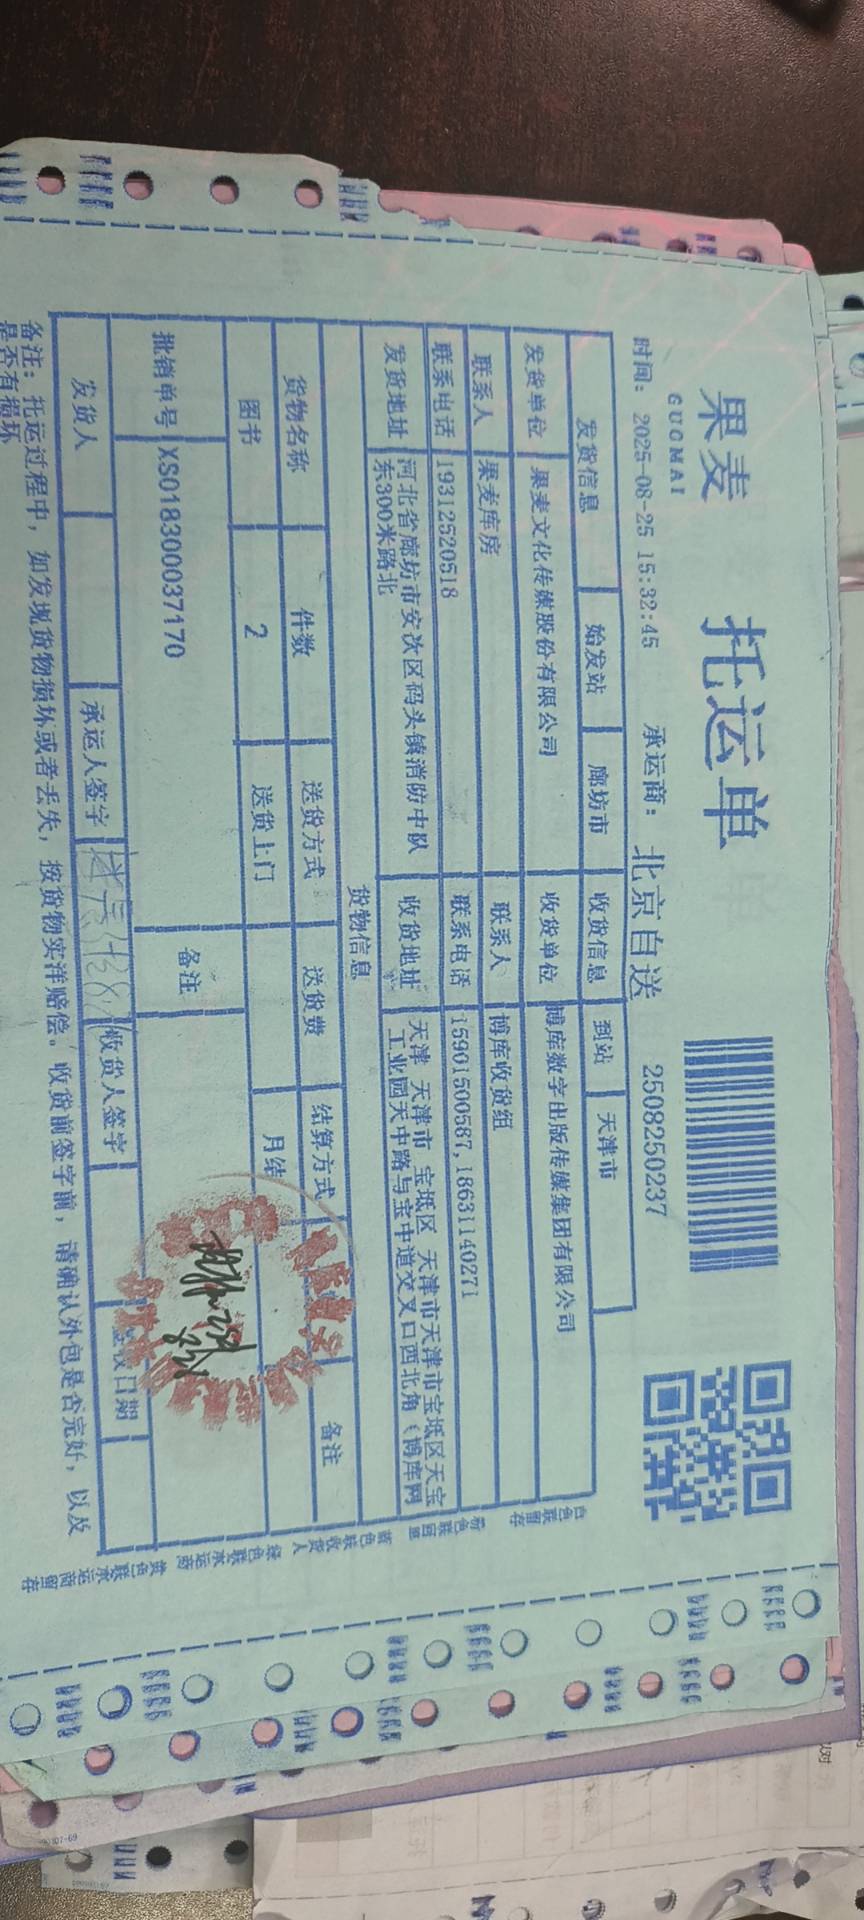 果麦
GUOMAI
托运单
时间: 2025-08-25 15:32:45 承运商: 北京自送 2508250237
发货信息 始发站 廊坊市 收货信息 到站 天津市
发货单位 果麦文化传媒股份有限公司 收货单位 博库数字出版传媒集团有限公司
联系人 果麦库房 联系人 博库收货组
联系电话 19312520518 联系电话 15901500587,18631140271
发货地址 河北省廊坊市安次区码头镇消防中队东300米路北 收货地址 天津 天津市 宝坻区 天津市天津市宝坻区天宝工业园天中路与宝中道交叉口西北角(博库网
货物信息
货物名称 件数 送货方式 送货费 结算方式 备注
图书 2 送货上门 月结
批销单号 XS018300037170 备注
发货人 承运人签字 收货人签字 签收日期
备注: 托运过程中, 如发现货物损坏或者丢失, 按货物实洋赔偿。收货前签字前, 请确认外包是否完好, 以及
是否有损坏
白色联留存
粉色联回单
蓝色联收货人
绿色联承运商
黄色联承运商留存